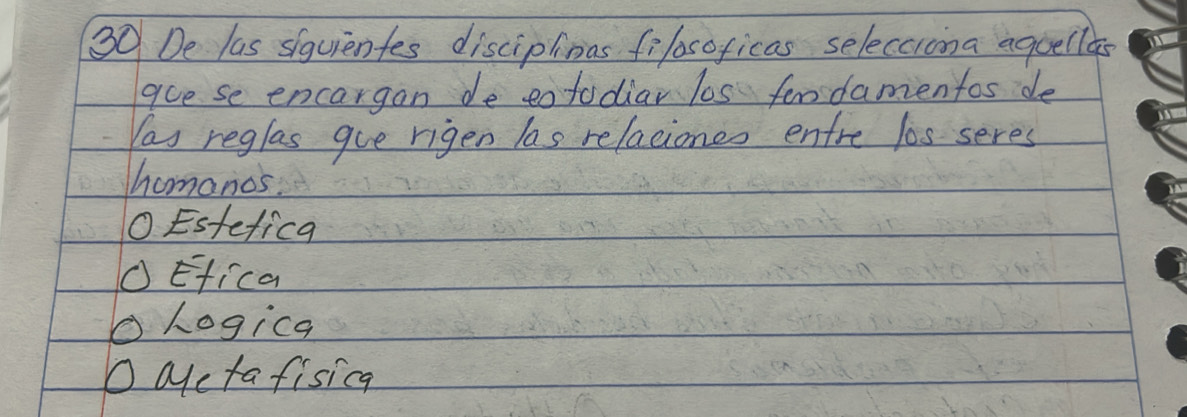 30 De las siguientes disciplinas filosoficas selecciona aquellas
que se encargan de estudiar los fundamentos de
las reglas que rigen las relaciones entre los seres
humanos.
O Estetica
O Ética
O Logica
O Metafisica